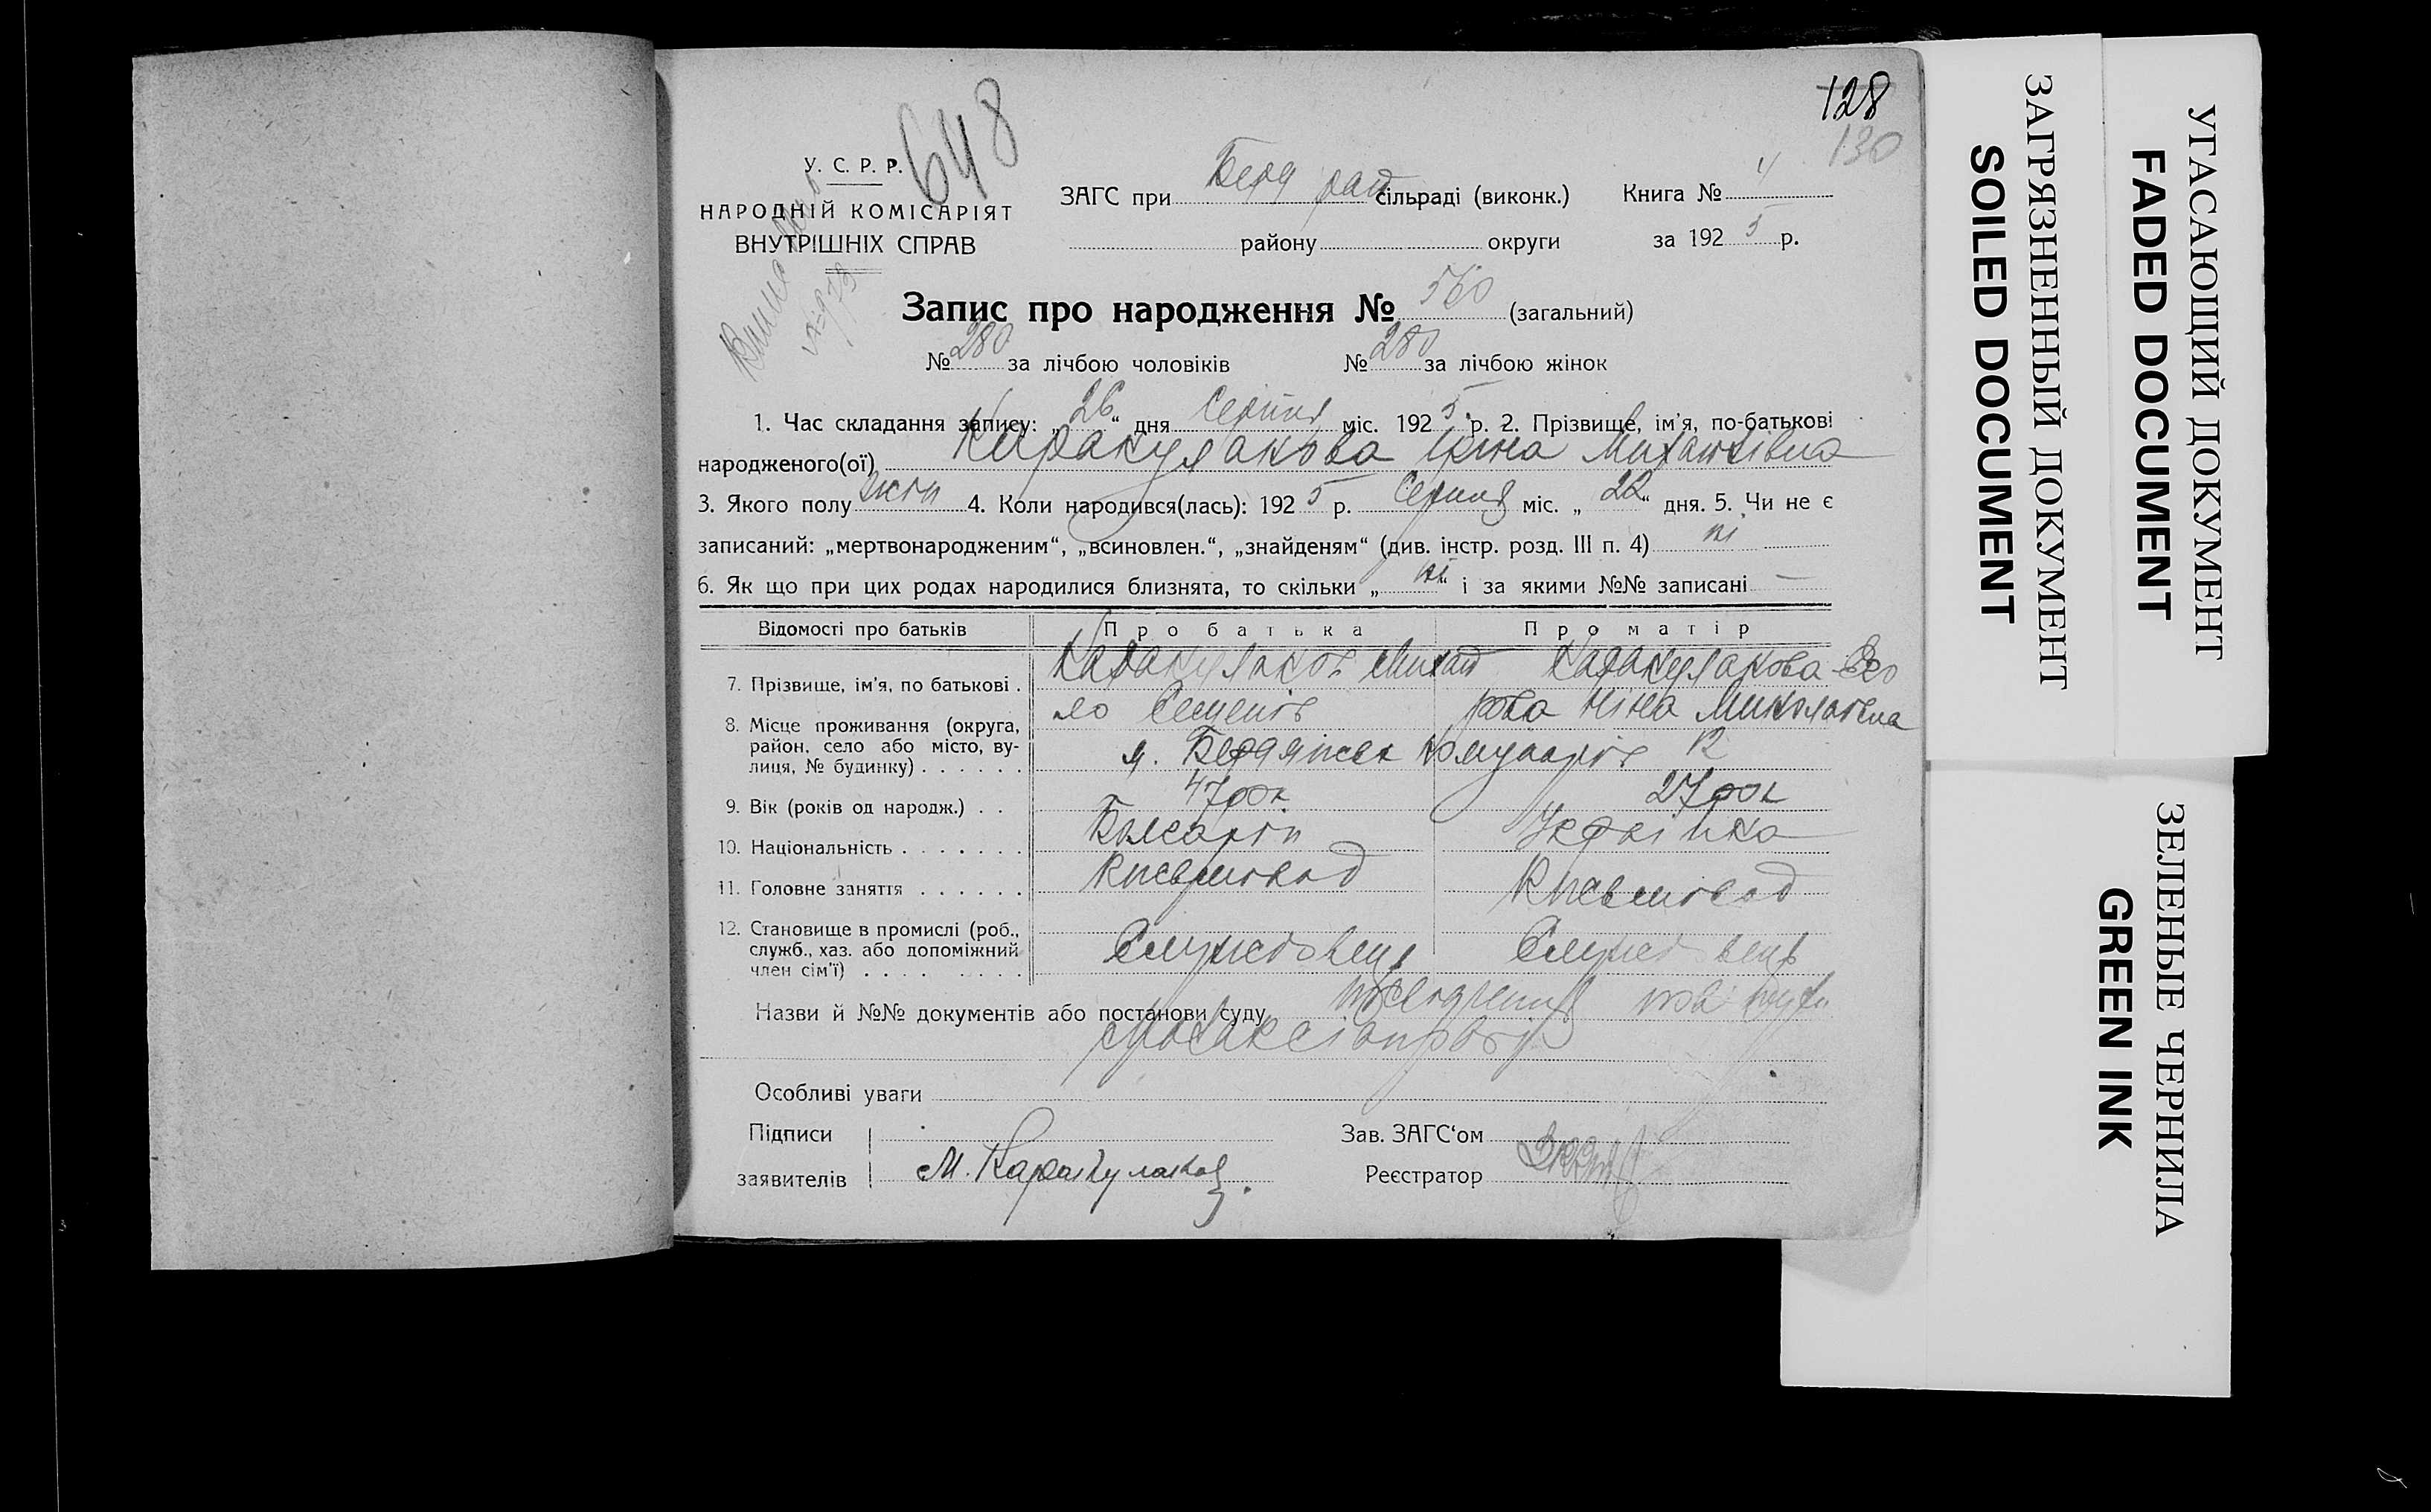 128
130
648
У. С. Р. Р.
НАРОДНІЙ КОМІСАРІЯТ
ВНУТРІШНІХ СПРАВ
ЗАГС при Берд рай сільраді (виконк.) Книга № 4
району округи за 192 5 р.
Запис про народження № 560 (загальний)
№ 280 за лічбою чоловіків № 280 за лічбою жінок
1. Час складання запису: „ 26 “ дня Серпня міс. 192 5 р. 2. Прізвище, ім’я, по-батькові
народженого(ої) Каракулакова Ніна Михайлівна
3. Якого полу жін 4. Коли народився(лась): 192 5 р. Серпня міс. „ 22 “ дня. 5. Чи не є
записаний: „мертвонародженим“, „всиновлен.“, „знайденям“ (див. інстр. розд. III п. 4) ні
6. Як що при цих родах народилися близнята, то скільки „ ні “ і за якими №№ записані —
Відомості про батьків Про батька Про матір
7. Прізвище, ім’я, по батькові . Каракулаков Михай Каракулакова
ло Семенів Ніна Миколаевна
8. Місце проживання (округа,
район, село або місто, ву-
лиця, № будинку) . . . . . . м. Бердянськ Комунарів 12
9. Вік (років од народж.) . . 47 рок. 27 рок
10. Національність . . . . . . . Українка
11. Головне заняття . . . . . .
12. Становище в промислі (роб.,
служб., хаз. або допоміжний
член сім’ї) . . . . . . . . Службовець Службовець
Назви й №№ документів або постанови суду посвідчення
Особливі уваги
Підписи
заявителів М. Каракулаков.
Зав. ЗАГС‘ом
Реєстратор
УГАСАЮЩИЙ ДОКУМЕНТ
FADED DOCUMENT
ЗАГРЯЗНЕННЫЙ ДОКУМЕНТ
SOILED DOCUMENT
ЗЕЛЕНЫЕ ЧЕРНИЛА
GREEN INK